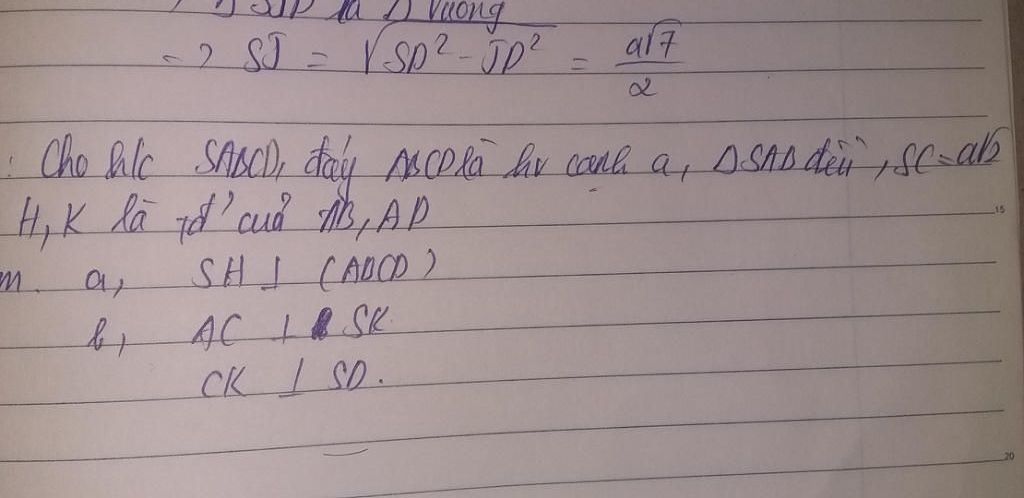 Δ SJD là Δ vuông
=> SJ = √SD² - JD² = a√7/2
: Cho h/c SABCD, đáy ABCD là hv cạnh a, ΔSAB đều, SC = a√2
H, K là tđ' của AB, AD
m. a, SH ⊥ (ABCD)
b, AC ⊥ SK
CK ⊥ SD.
15
20